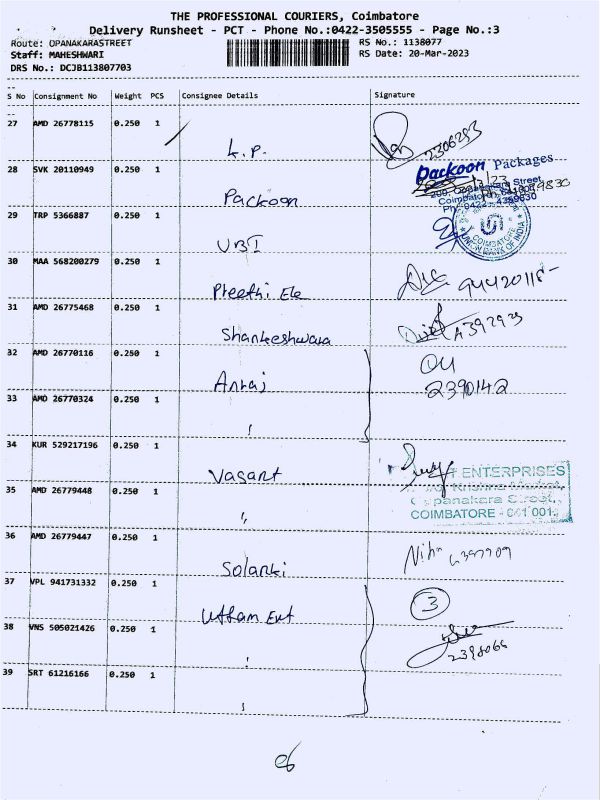 THE PROFESSIONAL COURIERS, Coimbatore
Delivery Runsheet - PCT - Phone No.:0422-3505555 - Page No.:3
Route: OPANAKARASTREET RS No.: 1138077
Staff: MAHESHWARI RS Date: 20-Mar-2023
DRS No.: DCJB113807703
S No Consignment No Weight PCS Consignee Details Signature
27 AMD 26778115 0.250 1 L.P. 2306293
28 SVK 20110949 0.250 1 Packoon Packoon Packages
29 TRP 5366887 0.250 1 UBI COIMBATORE UNION BANK OF INDIA
30 MAA 568200279 0.250 1 Preethi Ele
31 AMD 26775468 0.250 1 Shankeshwara
32 AMD 26770116 0.250 1 2390142
33 AMD 26770324 0.250 1
34 KUR 529217196 0.250 1 Vasant ENTERPRISES
35 AMD 26779448 0.250 1 " COIMBATORE - 641 001.
36 AMD 26779447 0.250 1 Solanki
37 VPL 941731332 0.250 1 Uttam Ent 3
38 VNS 505021426 0.250 1 2398066
39 SRT 61216166 0.250 1